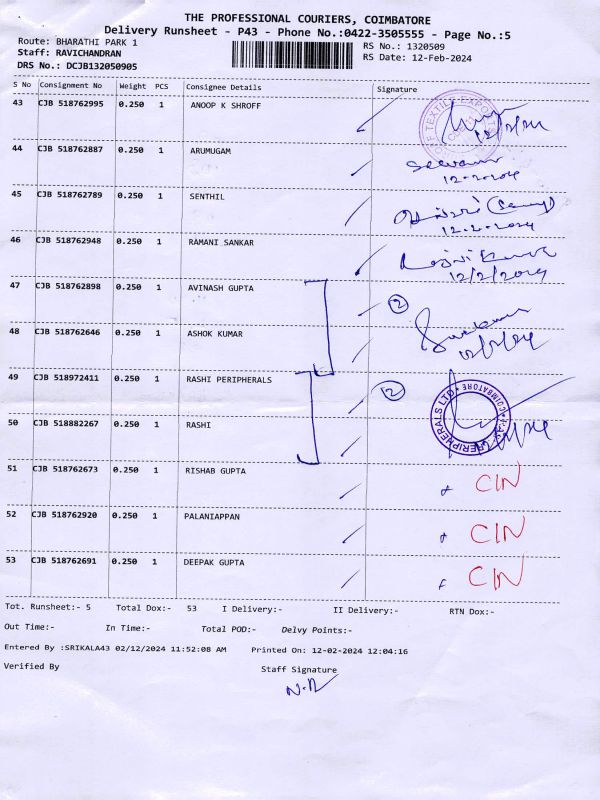 THE PROFESSIONAL COURIERS, COIMBATORE
Delivery Runsheet - P43 - Phone No.:0422-3505555 - Page No.:5
Route: BHARATHI PARK 1
RS No.: 1320509
Staff: RAVICHANDRAN
RS Date: 12-Feb-2024
DRS No.: DCJB132050905
S No Consignment No Weight PCS Consignee Details Signature
43 CJB 518762995 0.250 1 ANOOP K SHROFF
44 CJB 518762887 0.250 1 ARUMUGAM
12-2-2024
45 CJB 518762789 0.250 1 SENTHIL
12-2-2024
46 CJB 518762948 0.250 1 RAMANI SANKAR
12/2/2024
47 CJB 518762898 0.250 1 AVINASH GUPTA
2
48 CJB 518762646 0.250 1 ASHOK KUMAR
12/2/24
49 CJB 518972411 0.250 1 RASHI PERIPHERALS
2
50 CJB 518882267 0.250 1 RASHI
PERIPHERALS LTD COIMBATORE
51 CJB 518762673 0.250 1 RISHAB GUPTA
CIN
52 CJB 518762920 0.250 1 PALANIAPPAN
CIN
53 CJB 518762691 0.250 1 DEEPAK GUPTA
CIN
Tot. Runsheet:- 5 Total Dox:- 53 I Delivery:- II Delivery:- RTN Dox:-
Out Time:- In Time:- Total POD:- Delvy Points:-
Entered By :SRIKALA43 02/12/2024 11:52:08 AM Printed On: 12-02-2024 12:04:16
Verified By Staff Signature